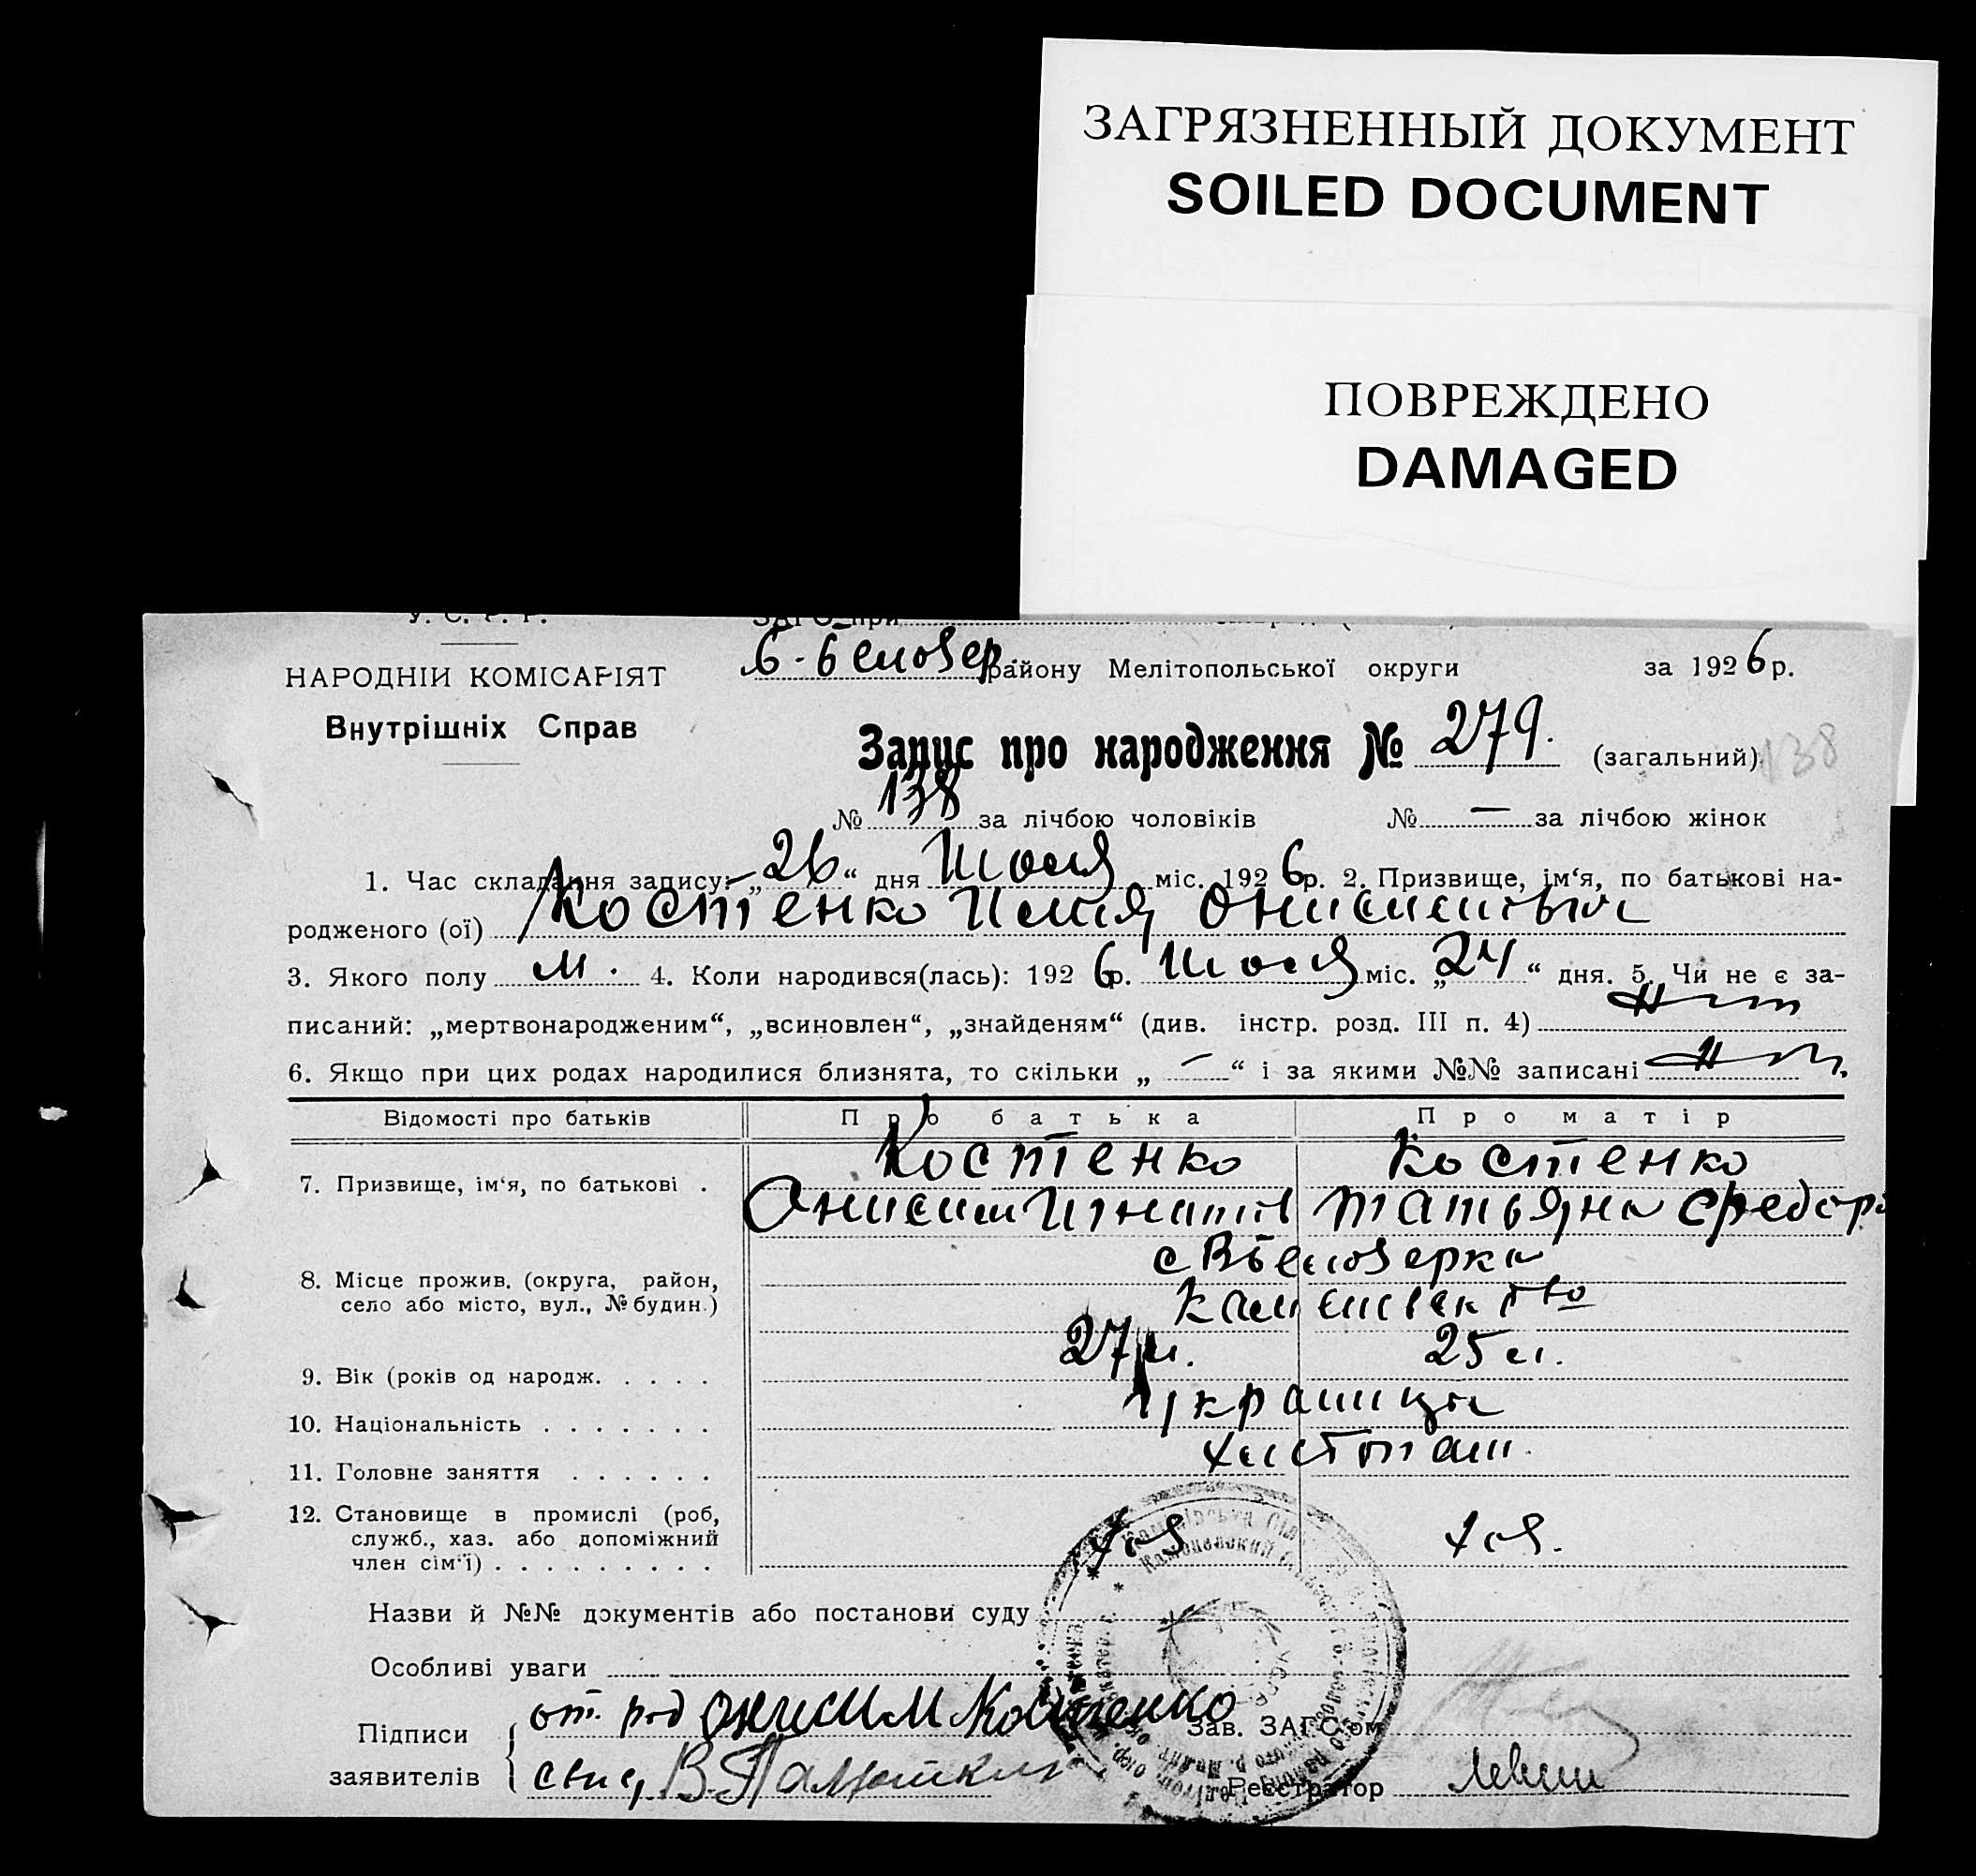 ЗАГРЯЗНЕННЫЙ ДОКУМЕНТ
SOILED DOCUMENT
ПОВРЕЖДЕНО
DAMAGED
У. С. Р. Р.
ЗАГС при
НАРОДНІЙ КОМІСАРІЯТ
Внутрішніх Справ
Б-Белозер. району Мелітопольської округи за 1926 р.
Запис про народження № 279. (загальний) 138
№ 138 за лічбою чоловіків № — за лічбою жінок
1. Час складання запису: „26“ дня Июля міс. 1926 р. 2. Призвище, ім‘я, по батькові на-
родженого (ої) Костенко Илия Онисимович
3. Якого полу м. 4. Коли народився(лась): 1926 р. Июля міс. „24“ дня. 5. Чи не є за-
писаний: „мертвонародженим“, „всиновлен“, „знайденям“ (див. інстр. розд. III п. 4) нет
6. Якщо при цих родах народилися близнята, то скільки „—“ і за якими №№ записані нет.
Відомості про батьків Про батька Про матір
7. Призвище, ім‘я, по батькові . Костенко Костенко
Онисим Игнатів Татьяна Федор
8. Місце прожив. (округа, район, село або місто, вул., № будин.) с Белозерка
9. Вік (років од народж. . . . . 27 л. 25 л.
10. Національність . . . . . . . Украинцы
11. Головне заняття . . . . . . хлебопаш.
12. Становище в промислі (роб,
служб., хаз. або допоміжний
член сім‘ї) . . . . . . . . .
Назви й №№ документів або постанови суду
Особливі уваги
Підписи от. род Онисим Костенко Зав. ЗАГС‘ом
заявителів свид В. Реєстратор